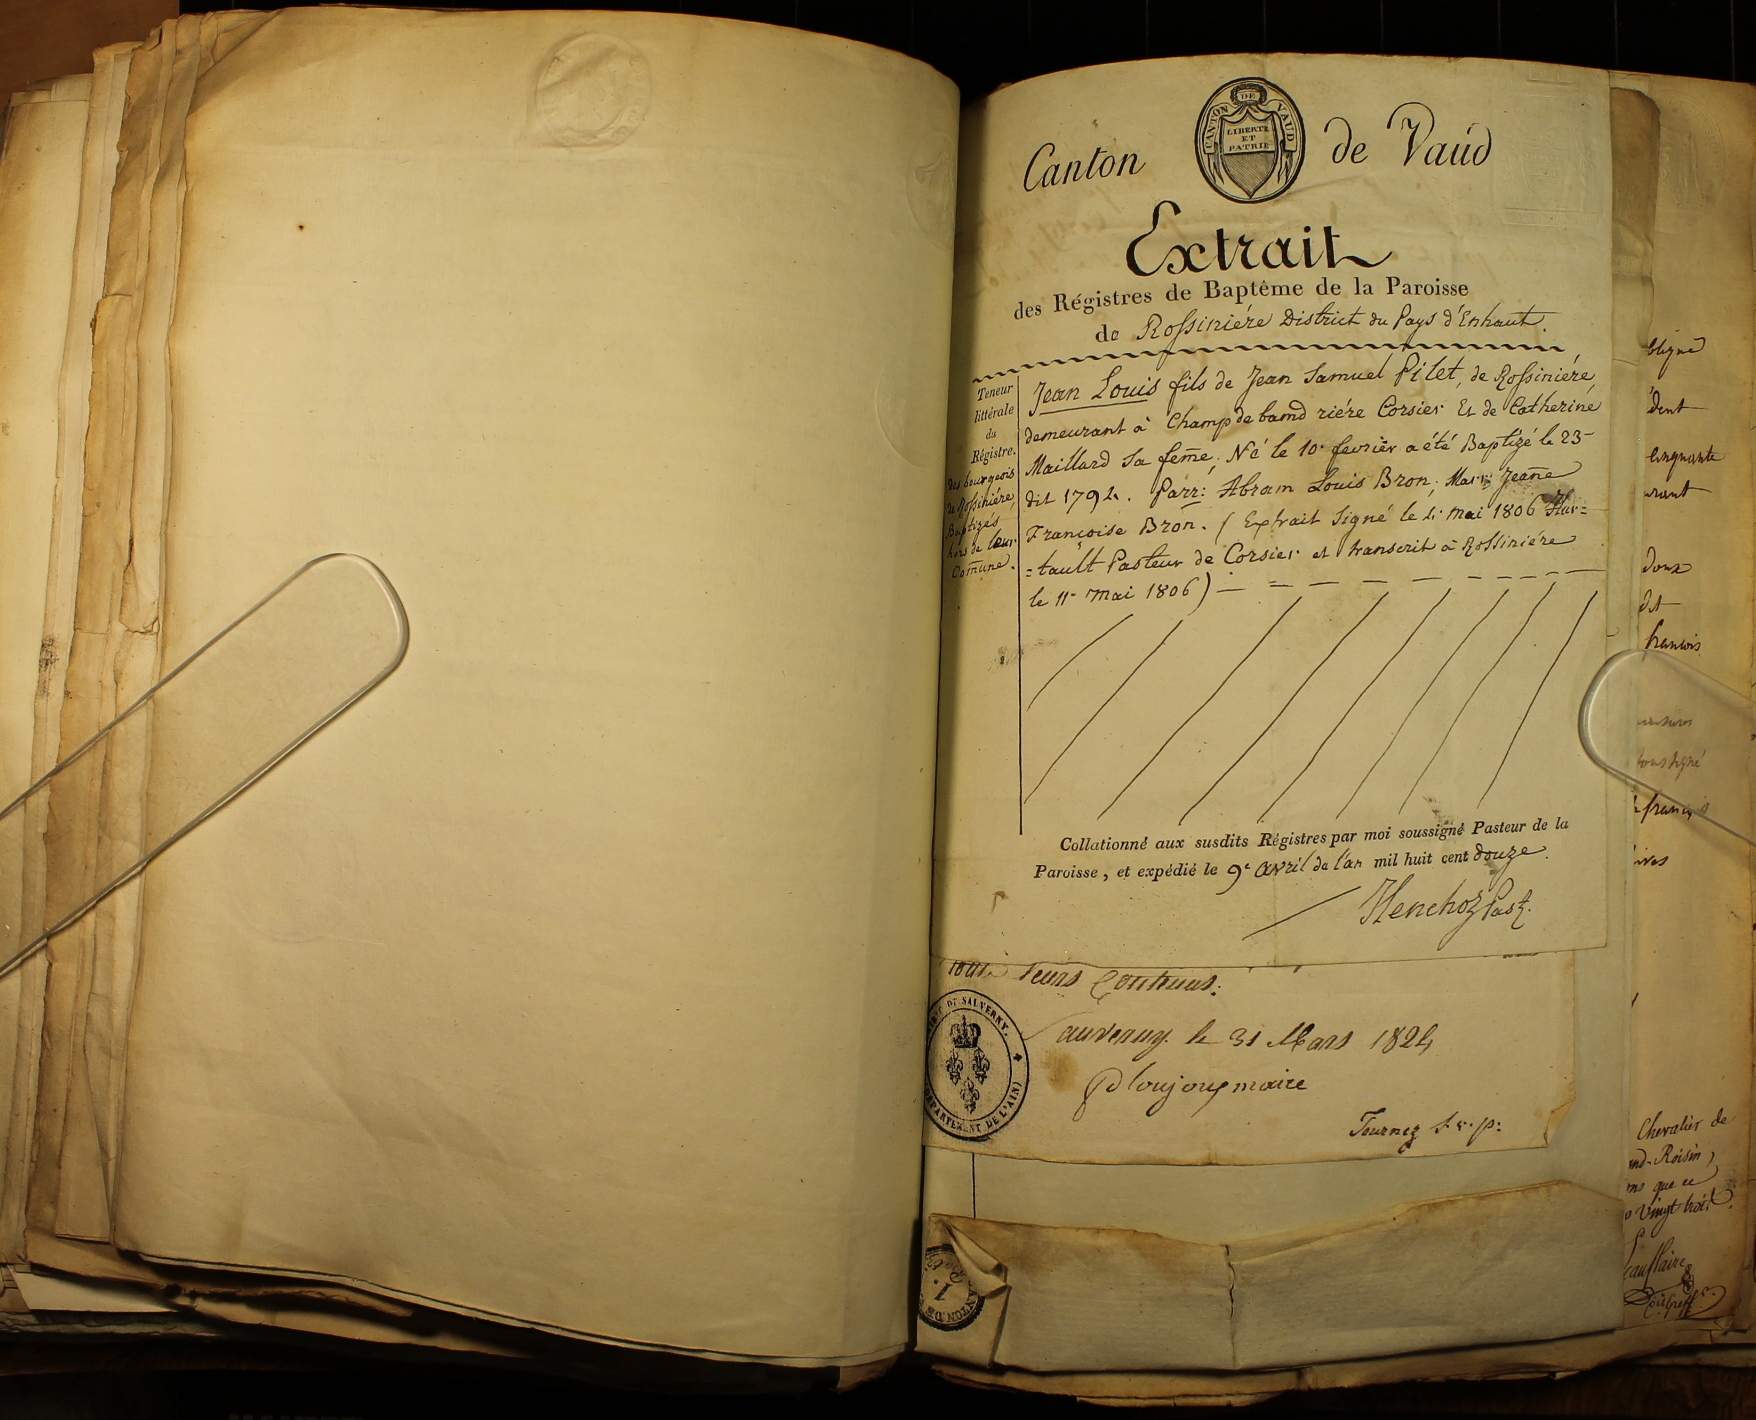 Canton de Vaud
CANTON DE VAUD
LIBERTÉ
ET
PATRIE
Extrait
des Régistres de Baptême de la Paroisse
de Rossiniére District du Pays d'Enhaut.
Teneur
littérale
du
Régistre.
des bourgeois
de Rossiniére,
Baptizés
hors de leur
Com̄une.
Jean Louis fils de Jean Samuel Pilet, de Rossiniére,
demeurant à Champ de band riére Corsier Et de Catherine
Maillard sa fem̄e; Né le 10e fevrier a été Baptizé le 23e
dit 1792. Parr: Abram Louis Bron; Marr: Jean̄e
Francoise Bron. (Extrait Signé le 4e mai 1806 Hur=
=tault Pasteur de Corsier et transcrit à Rossiniére
le 11e Mai 1806)
Collationné aux susdits Régistres par moi soussigné Pasteur de la
Paroisse, et expédié le 9e avril de l'an mil huit cent douze.
Henchoz Past.
leurs Contenus:
Sauverny le 31 Mars 1824
maire
Tournez
DE SALVERNY.
DEPARTEMENT DE L'AIN)
1.
CANTON DE
obligné
cinquante
doux
dit
francois
soussigné
francs
Chevalier de
Roisin,
que ce
Vingt trois.